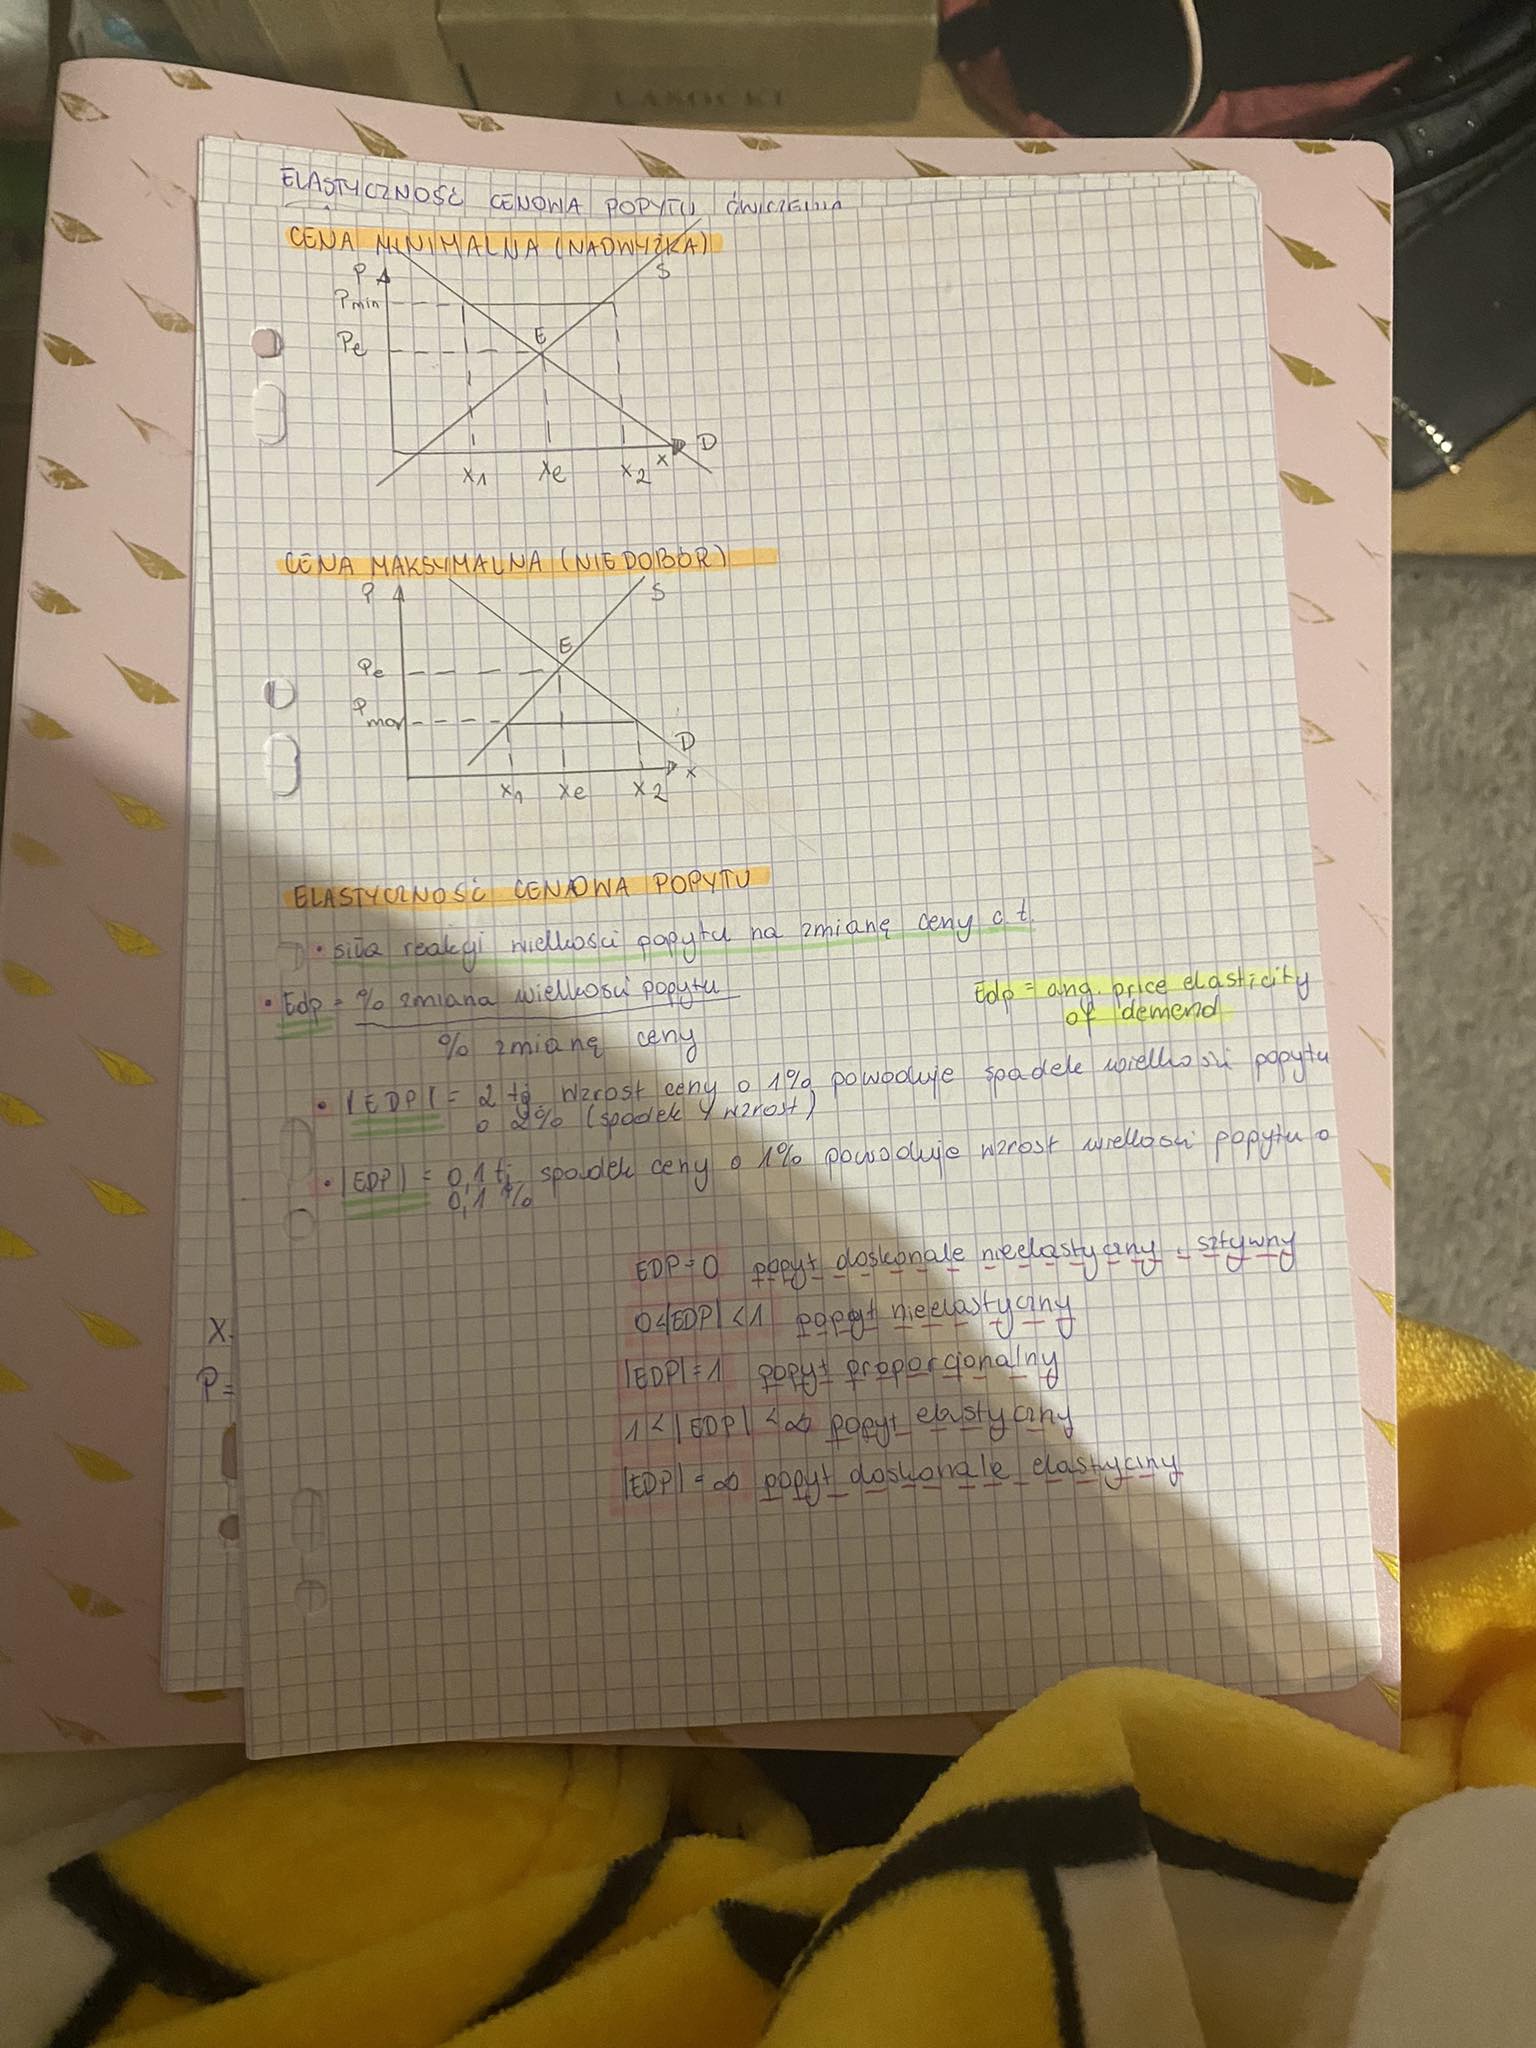 LASOCKI
ELASTYCZNOŚĆ CENOWA POPYTU ĆWICZENIA
CENA MINIMALNA (NADWYŻKA)
P
S
Pmin
Pe
E
D
X1 Xe X2 X
CENA MAKSYMALNA (NIEDOBÓR)
P
S
E
Pe
Pmax
D
X
X1 Xe X2
ELASTYCZNOŚĆ CENOWA POPYTU
• siła reakcji wielkości popytu na zmianę ceny c.t.
• Edp = % zmiana wielkości popytu
% zmianą ceny
Edp = ang. price elasticity
of demend
• |EDP| = 2 tj. wzrost ceny o 1% powoduje spadek wielkości popytu
o 2% (spadek / wzrost)
• |EDP| = 0,1 tj. spadek ceny o 1% powoduje wzrost wielkości popytu o
0,1%
EDP=0 popyt doskonale nieelastyczny, sztywny
0<|EDP|<1 popyt nieelastyczny
|EDP|=1 popyt proporcjonalny
1<|EDP|<∞ popyt elastyczny
|EDP|=∞ popyt doskonale elastyczny
X
P=